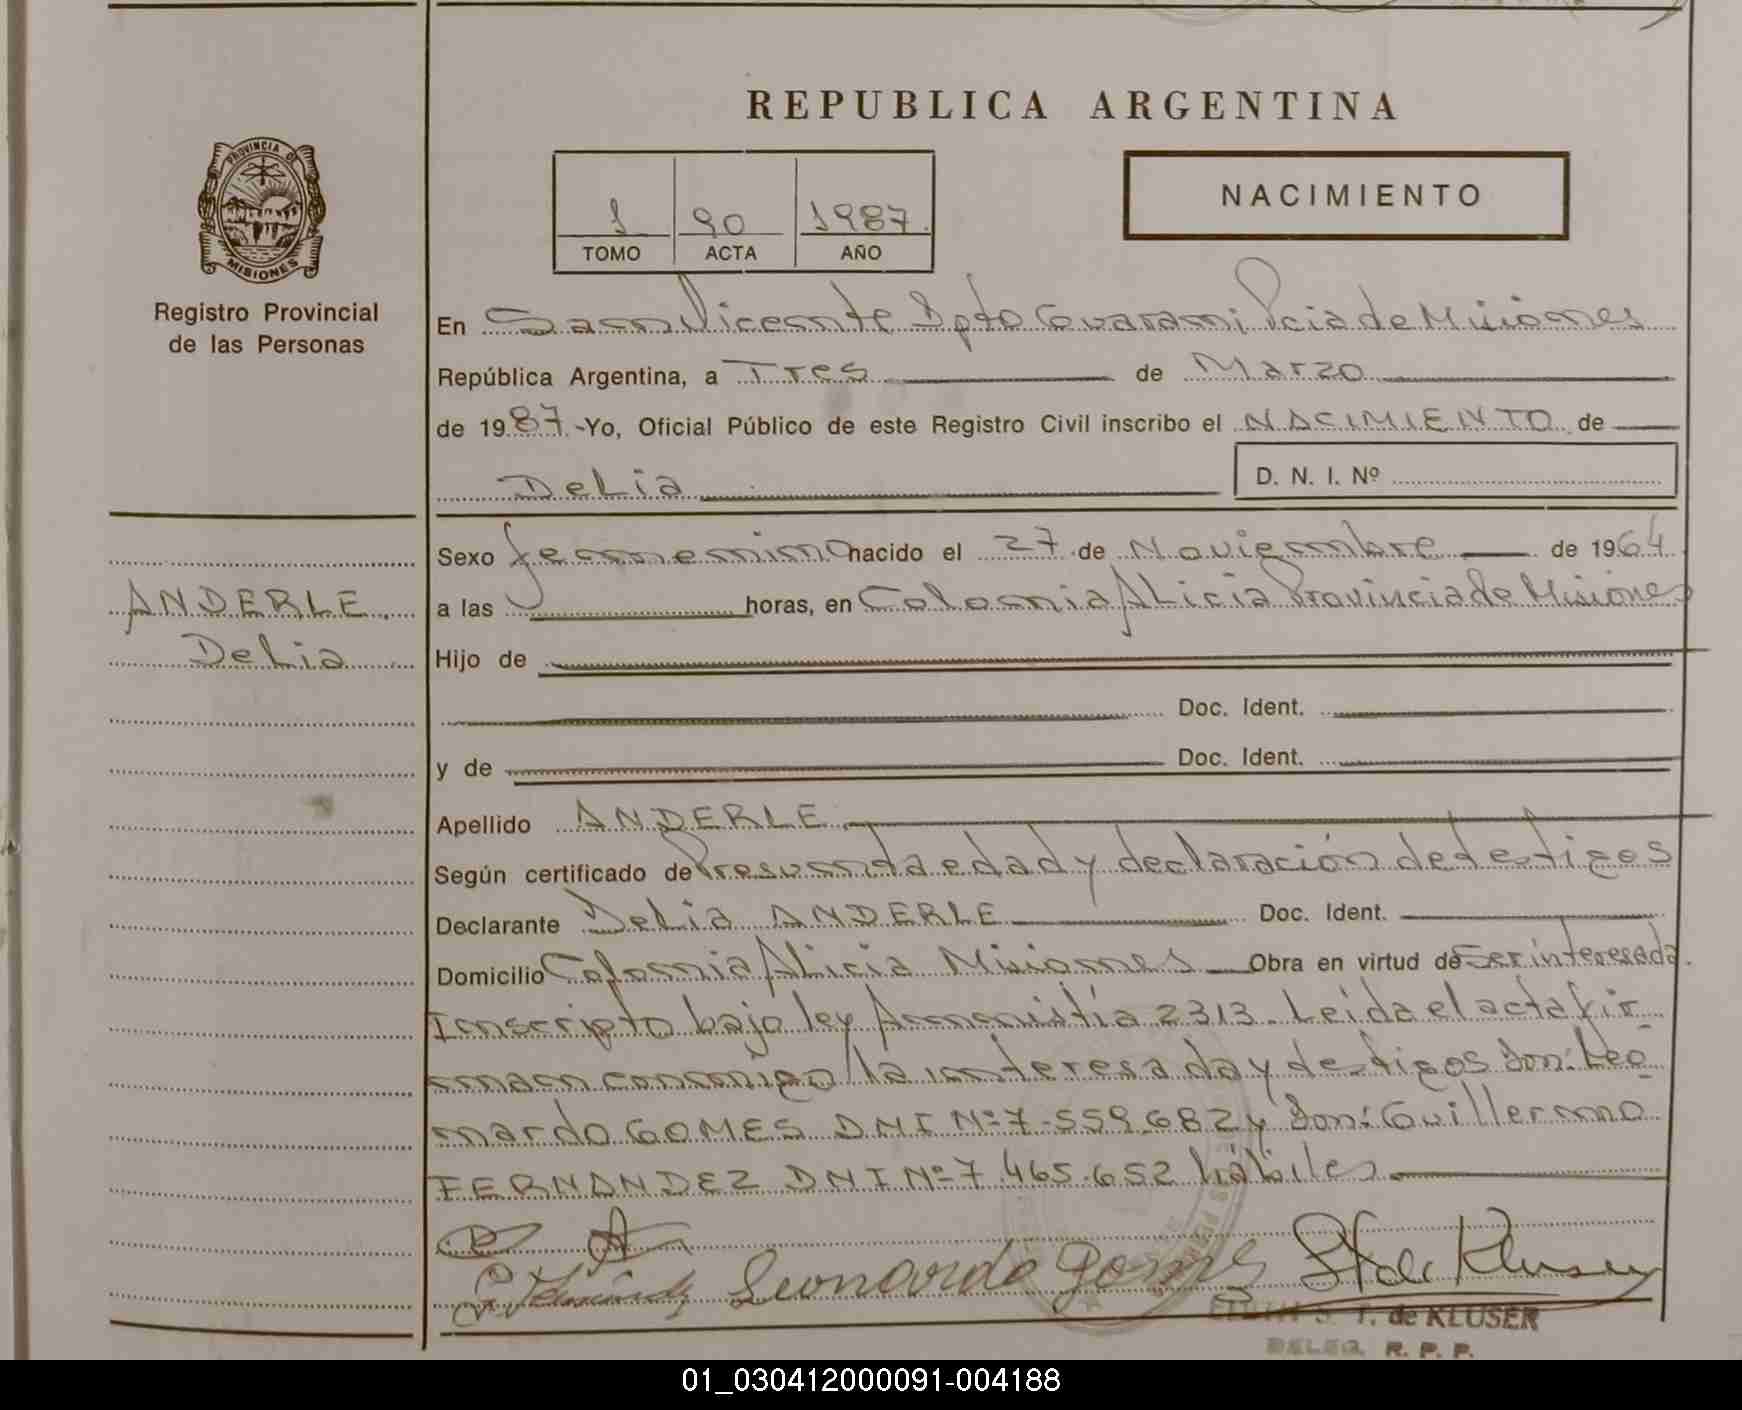 REPUBLICA ARGENTINA
PROVINCIA DE
MISIONES
Registro Provincial
de las Personas
1 90 1987
TOMO ACTA AÑO
NACIMIENTO
En San Vicente Dpto Guarani Pcia de Misiones
República Argentina, a Tres de Marzo
de 1987 - Yo, Oficial Público de este Registro Civil inscribo el NACIMIENTO de
Delia D. N. I. Nº
ANDERLE
Delia
Sexo femenino nacido el 27 de Noviembre de 1964
a las horas, en Colonia Alicia Provincia de Misiones
Hijo de
Doc. Ident.
y de Doc. Ident.
Apellido ANDERLE
Según certificado de Presunta edad y declaración de testigos
Declarante Delia ANDERLE Doc. Ident.
Domicilio Colonia Alicia Misiones Obra en virtud de Ser interesada.
Inscripto bajo ley Amnistía 2313. Leída el acta fir
man conmigo la interesada y testigos Don: Leo
nardo GOMES DNI Nº 7.559.682 y Don: Guillermo
FERNANDEZ DNI Nº 7.465.652 hábiles
Leonardo Gomes
S T de Kluser
S. T. de KLUSER
DELEG. R. P. P.
01_030412000091-004188